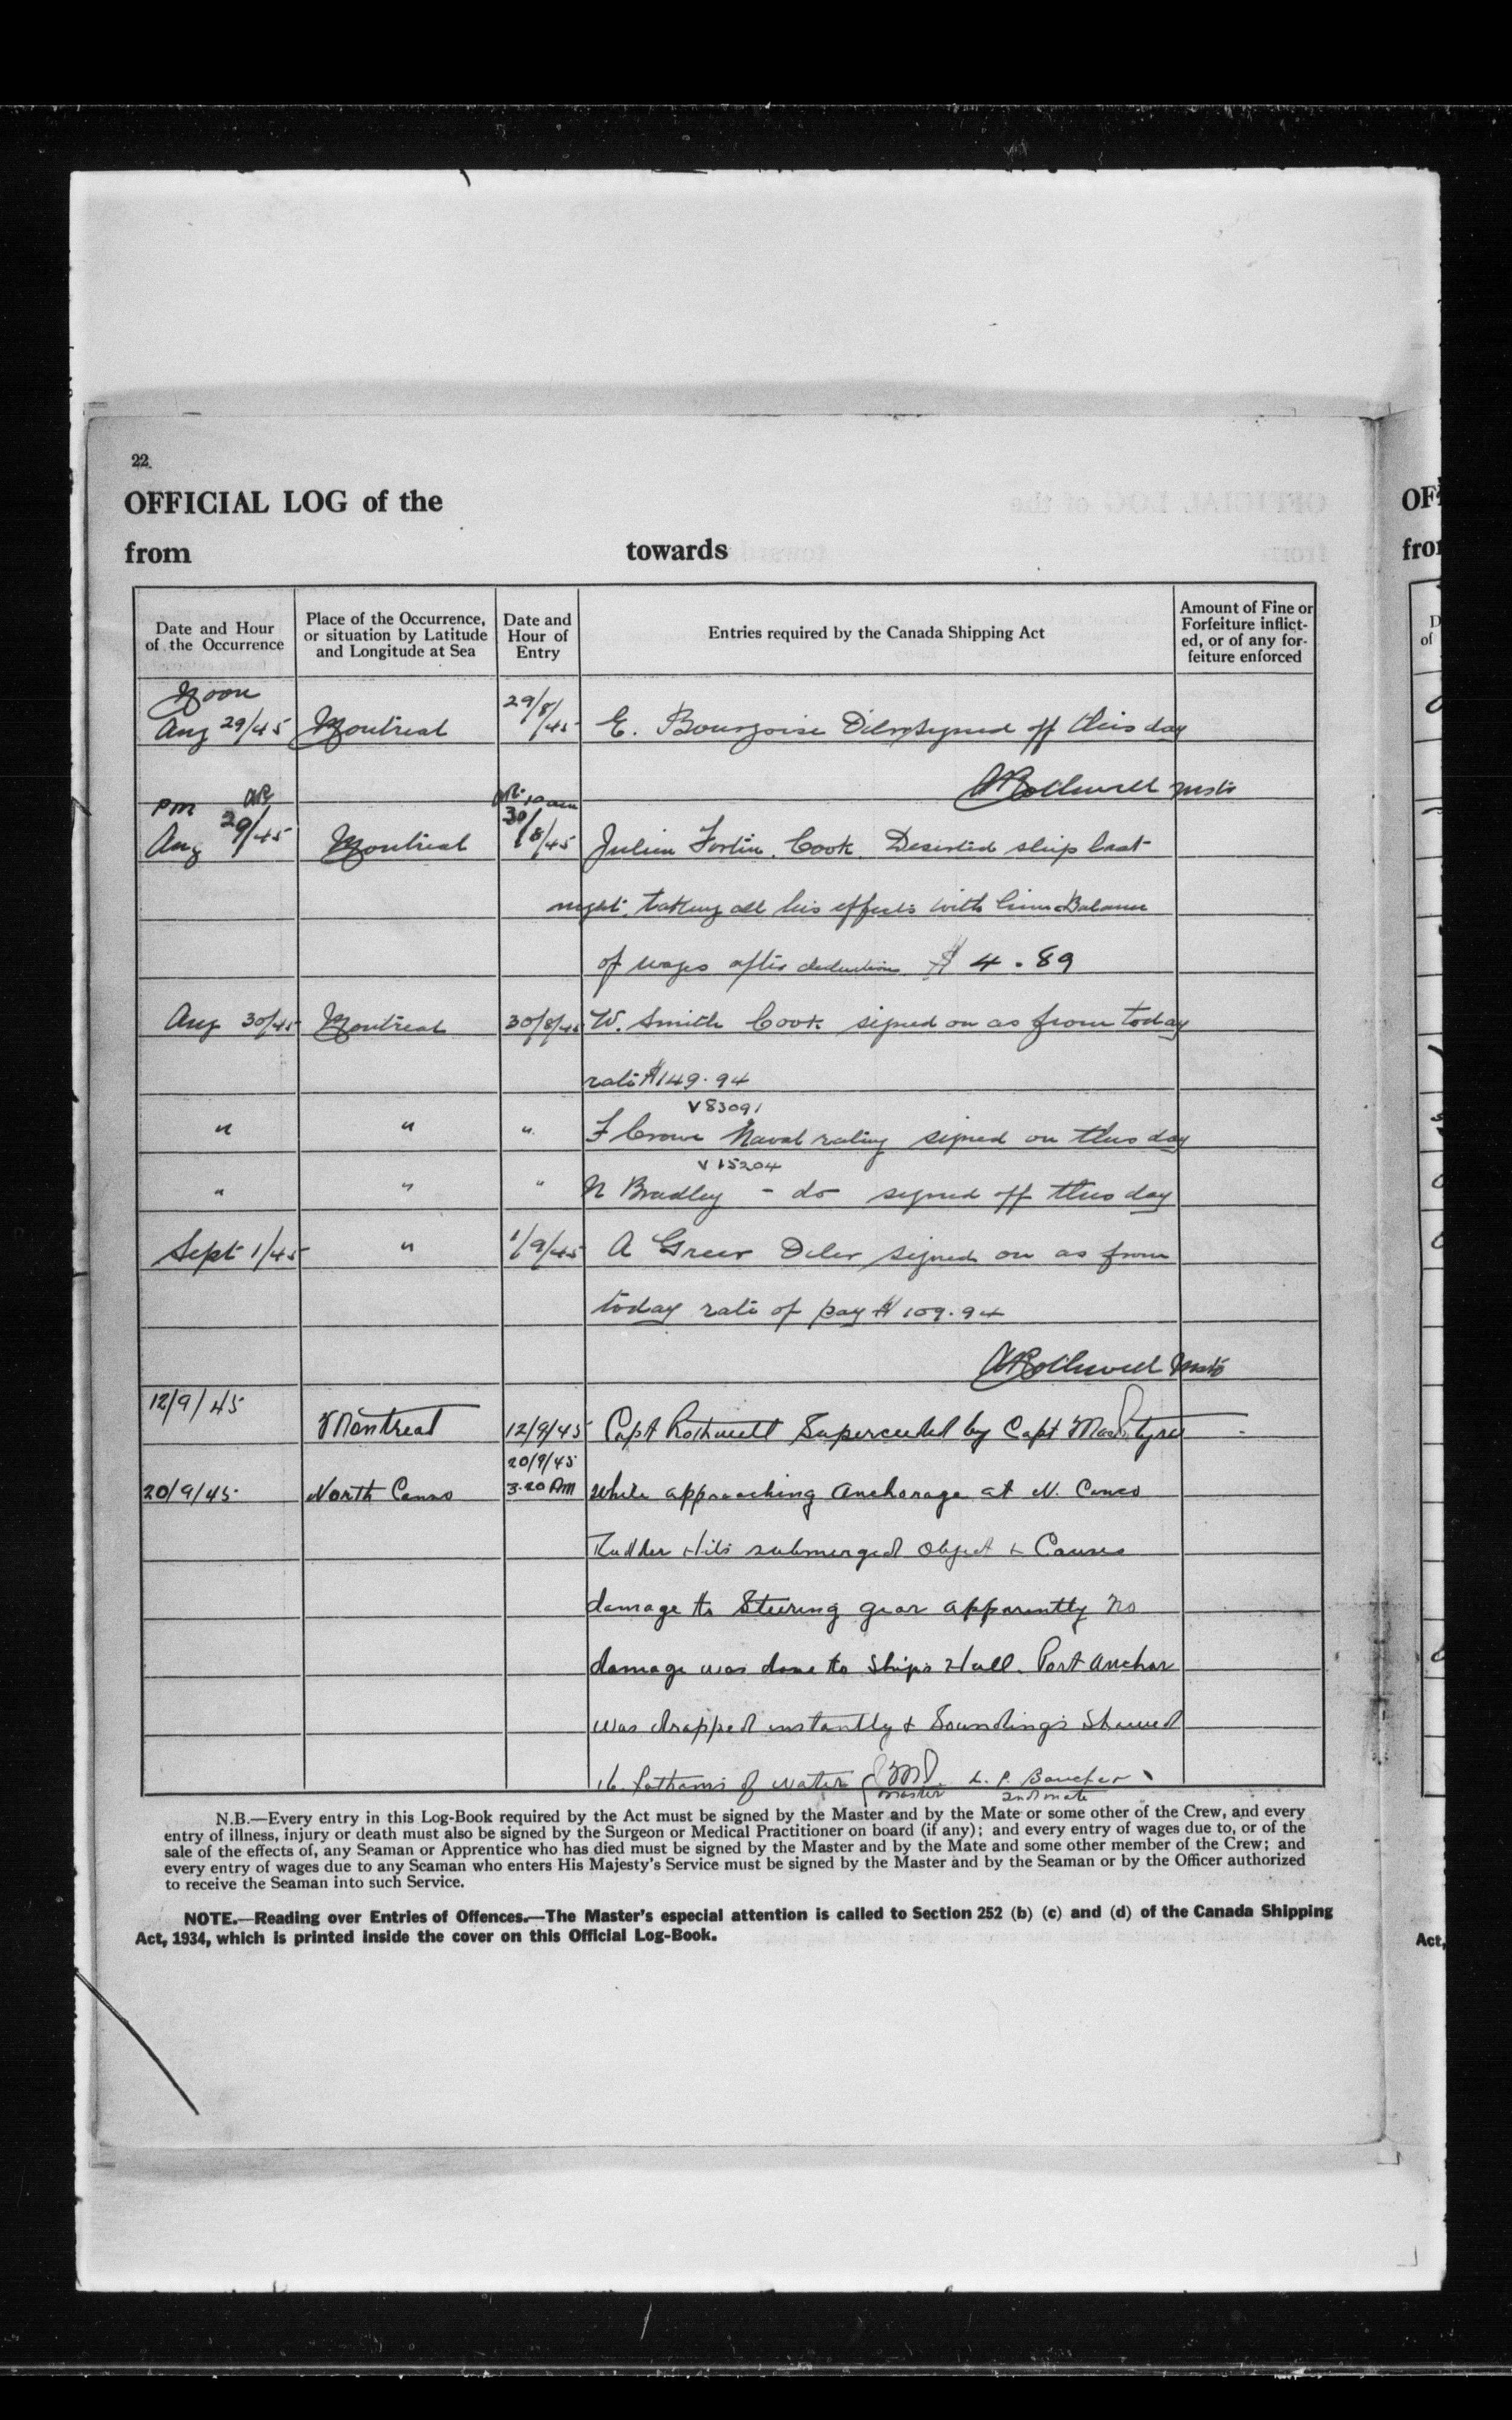 22
OFFICIAL LOG of the
from towards
Date and Hour of the Occurrence
Place of the Occurrence, or situation by Latitude and Longitude at Sea
Date and Hour of Entry
Entries required by the Canada Shipping Act
Amount of Fine or Forfeiture inflicted, or of any forfeiture enforced
Noon
Aug 29/45 Montreal 29/8/45 E. Bourgoise Oiler signed off this day
A Rothwell Mstr
PM AR AR 10 am
Aug 29/45 Montreal 30/8/45 Julien Fortin. Cook. Deserted ship last
night. taking all his effects with him Balance
of wages after deductions $ 4.89
Aug 30/45 Montreal 30/8/45 W. Smith Cook signed on as from today
rate $149.94
V 83091
" " " F Crowe Naval rating signed on this day
V 15204
" " " N Bradley - do - signed off this day
Sept 1/45 " 1/9/45 A Greer Oiler signed on as from
today rate of pay $ 109.94
A Rothwell Mstr
12/9/45 Montreal 12/9/45 Capt Rothwell Superceeded by Capt MacIntyre
20/9/45
20/9/45 North Canso 3.20 AM While approaching anchorage at N. Canso
Rudder Hits submerged object & Causes
damage to Steering gear apparently no
damage was done to Ship's Hull. Port anchor
was dropped instantly & Soundings Showed
16 fathoms of water L. P. Boucher
Master 2nd mate
N.B.—Every entry in this Log-Book required by the Act must be signed by the Master and by the Mate or some other of the Crew, and every
entry of illness, injury or death must also be signed by the Surgeon or Medical Practitioner on board (if any); and every entry of wages due to, or of the
sale of the effects of, any Seaman or Apprentice who has died must be signed by the Master and by the Mate and some other member of the Crew; and
every entry of wages due to any Seaman who enters His Majesty's Service must be signed by the Master and by the Seaman or by the Officer authorized
to receive the Seaman into such Service.
NOTE.—Reading over Entries of Offences.—The Master's especial attention is called to Section 252 (b) (c) and (d) of the Canada Shipping
Act, 1934, which is printed inside the cover on this Official Log-Book.